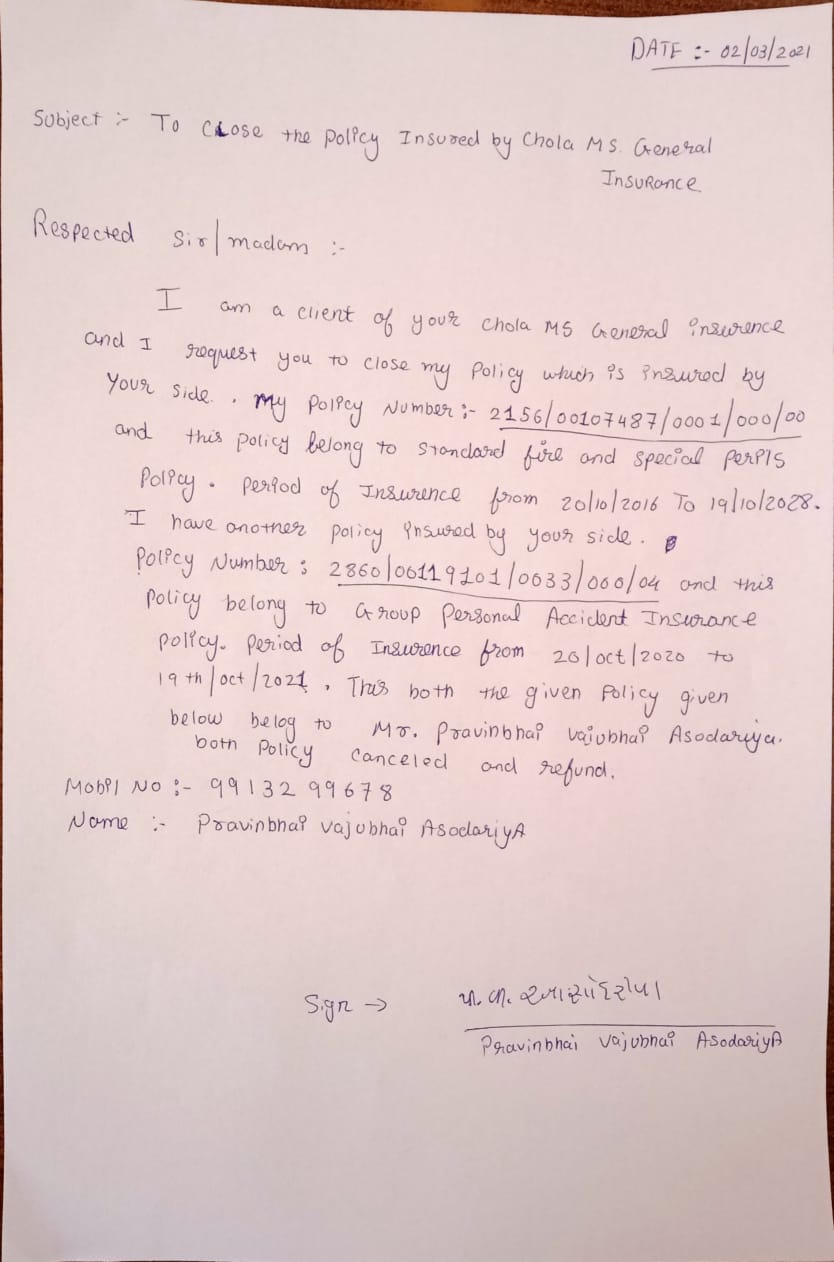 DATE :- 02/03/2021
Subject :- To Close the Policy Insured by Chola MS. General
Insurance
Respected Sir/madam :-
I am a client of your Chola MS General insurence
and I request you to close my Policy which is insured by
Your side. . my Policy Number :- 2156/00107487/0001/000/00
and this policy belong to standard fire and special Perpis
Policy. Period of Insurence from 20/10/2016 To 19/10/2028.
I have another policy insured by your side.
Policy Number : 2860/00119101/0033/000/04 and this
Policy belong to Group Personal Accident Insurance
policy. Period of Insurence from 20/oct/2020 to
19 th/oct/2021, This both the given Policy given
below belog to Mr. Pravinbhai Vajubhai Asodariya.
both Policy canceled and refund.
Mobil No :- 99132 99678
Name :- Pravinbhai Vajubhai AsodariyA
Sign →
Pravinbhai Vajubhai AsodariyA